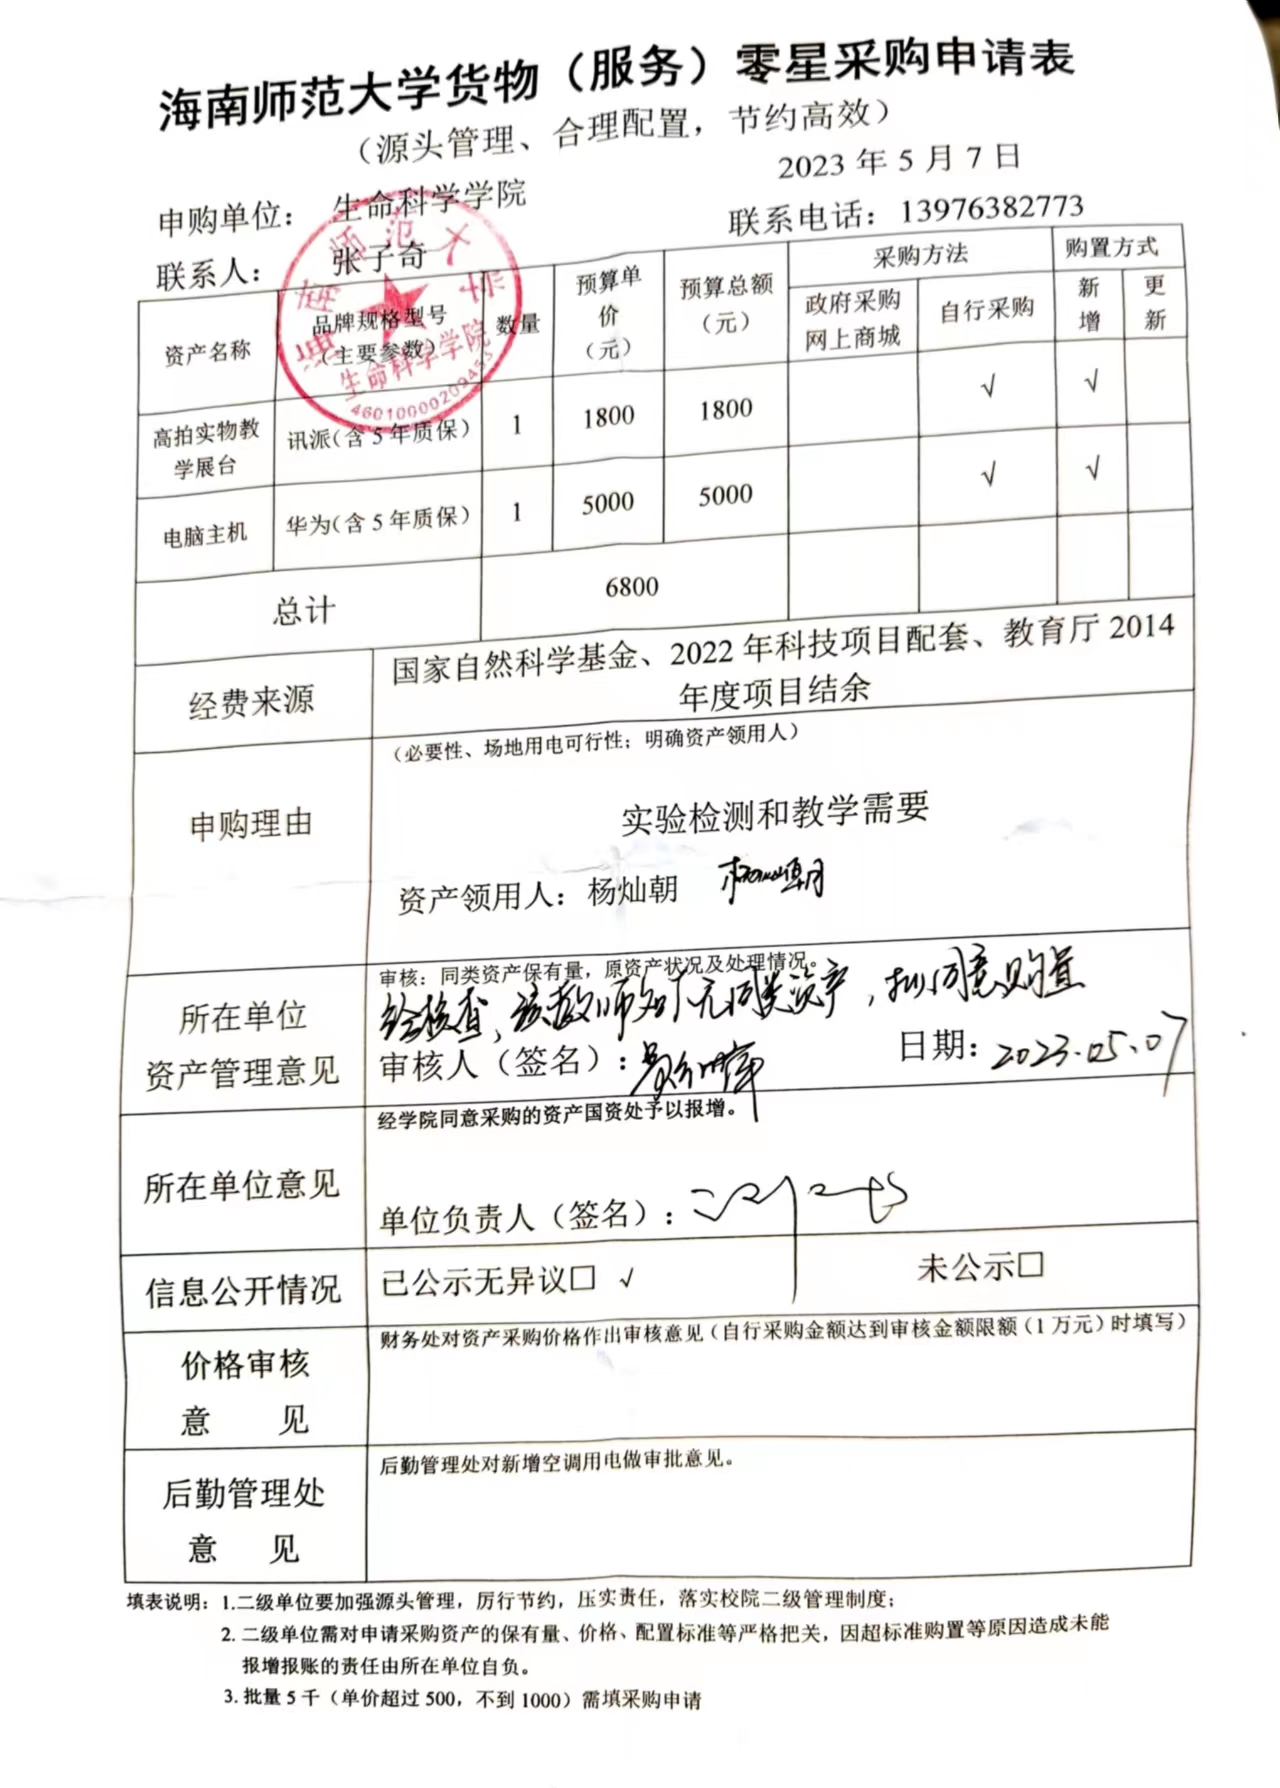 海南师范大学货物（服务）零星采购申请表
（源头管理、合理配置，节约高效）
2023 年 5 月 7 日
申购单位： 生命科学学院
联系电话：13976382773
联系人： 张子奇
海南师范大学
生命科学学院
资产名称 品牌规格型号（主要参数） 数量 预算单价（元） 预算总额（元） 采购方法 购置方式
政府采购网上商城 自行采购 新增 更新
高拍实物教学展台 讯派（含 5 年质保） 1 1800 1800 √ √
电脑主机 华为（含 5 年质保） 1 5000 5000 √ √
总计 6800
经费来源 国家自然科学基金、2022 年科技项目配套、教育厅 2014
年度项目结余
（必要性、场地用电可行性；明确资产领用人）
申购理由 实验检测和教学需要
资产领用人：杨灿朝 杨灿朝
审核：同类资产保有量，原资产状况及处理情况。
所在单位 经核查，该教师名下无同类资产，拟同意购置
资产管理意见 审核人（签名）： 日期：2023.05.07
经学院同意采购的资产国资处予以报增。
所在单位意见
单位负责人（签名）：
信息公开情况 已公示无异议□ √ 未公示□
财务处对资产采购价格作出审核意见（自行采购金额达到审核金额限额（1 万元）时填写）
价格审核
意 见
后勤管理处对新增空调用电做审批意见。
后勤管理处
意 见
填表说明：1.二级单位要加强源头管理，厉行节约，压实责任，落实校院二级管理制度；
2. 二级单位需对申请采购资产的保有量、价格、配置标准等严格把关，因超标准购置等原因造成未能
报增报账的责任由所在单位自负。
3. 批量 5 千（单价超过 500，不到 1000）需填采购申请